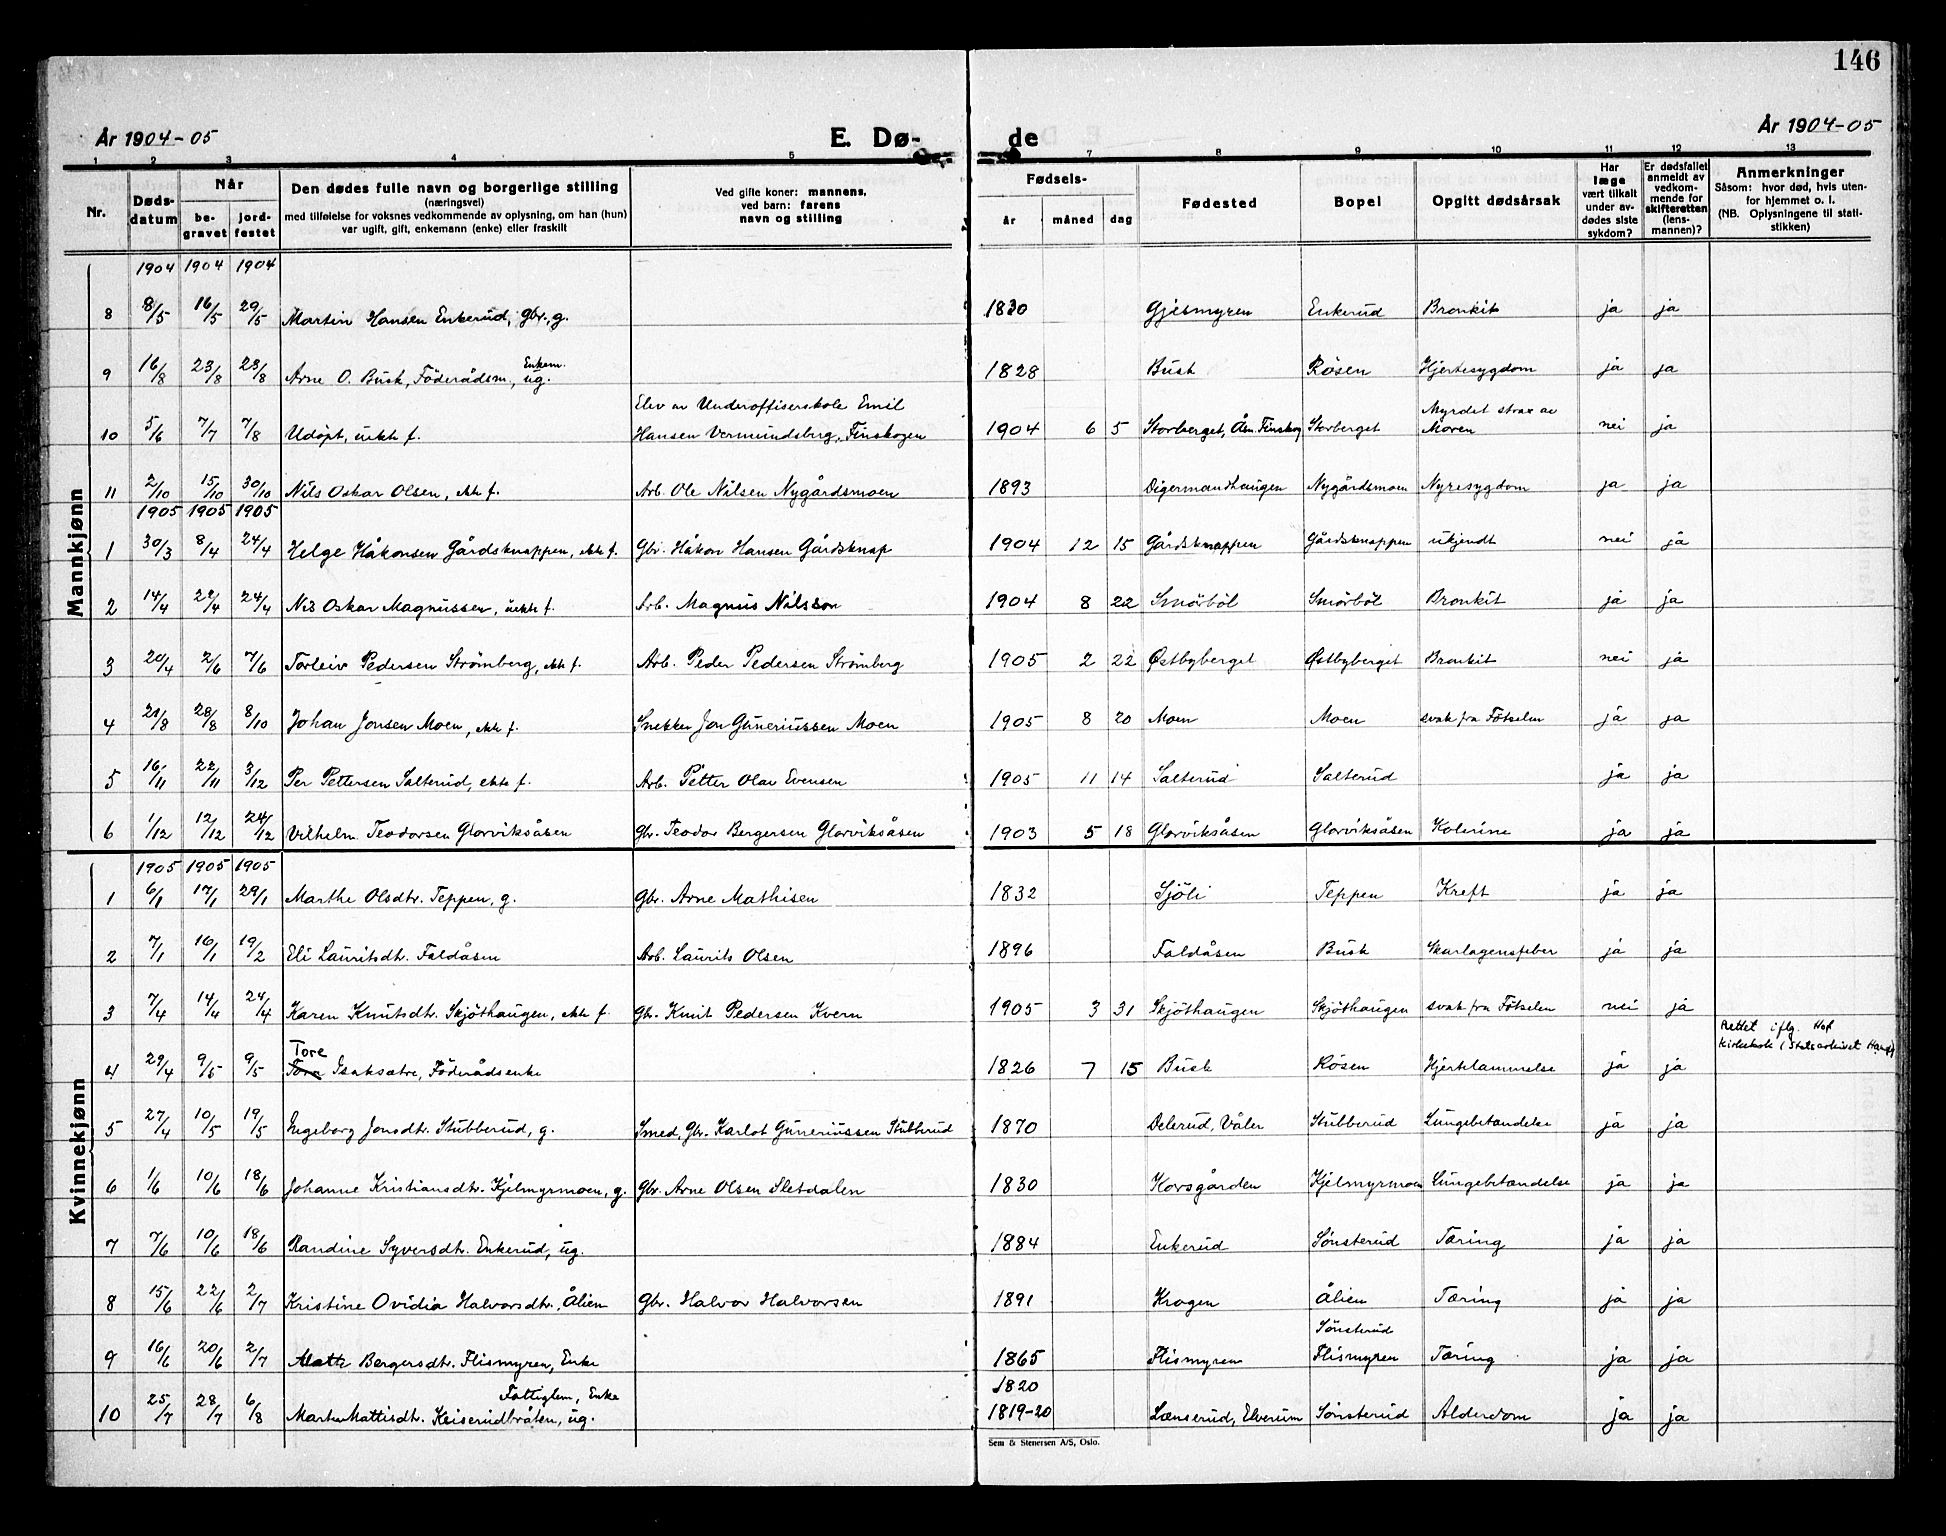 146
År 1904-05
E. Dø-
de
År 1904-05
1 2 3 4 5 7 8 9 10 11 12 13
Nr.
Døds-
datum
Når
be-
gravet
jord-
festet
Den dødes fulle navn og borgerlige stilling
(næringsvei)
med tilføielse for voksnes vedkommende av oplysning, om han (hun)
var ugift, gift, enkemann (enke) eller fraskilt
Ved gifte koner: mannens,
ved barn: farens
navn og stilling
Fødsels-
år måned dag
Fødested
Bopel
Opgitt dødsårsak
Har
læge
vært tilkalt
under av-
dødes siste
sykdom?
Er dødsfallet
anmeldt av
vedkom-
mende for
skifteretten
(lens-
mannen)?
Anmerkninger
Såsom: hvor død, hvis uten-
for hjemmet o. l.
(NB. Oplysningene til stati-
stikken)
Mannkjønn
1904 1904 1904
8 8/5 16/5 29/5 Martin Hansen Enkerud, gbr., g. 1830 Gjesmyren Enkerud Bronkit ja ja
Enkem.
9 16/8 23/8 23/8 Arne O. Busk, Föderådsm., ug. 1828 Busk Røsen Hjertesygdom ja ja
Elev av Underoffiserskole Emil Myrdet strax av
10 5/6 7/7 7/8 Udöpt, uekte f. Hansen Vermundsberg, Finskogen 1904 6 5 Storberget, Åsn. Finskog Storberget Moren nei ja
11 2/10 15/10 30/10 Nils Oskar Olsen, ekte f. Arb. Ole Nilsen Nygårdsmoen 1893 Digermandhaugen Nygårdsmoen Nyresygdom ja ja
1905 1905 1905
1 30/3 8/4 24/4 Helge Håkonsen Gårdsknappen, ekte f. Gbr. Håkon Hansen Gårdsknap 1904 12 15 Gårdsknappen Gårdsknappen ukjendt nei ja
2 14/4 22/4 24/4 Nils Oskar Magnussen, uekte f. Arb. Magnus Nilsson 1904 8 22 Smörböl Smörböl Bronkit ja ja
3 20/4 2/6 7/6 Torleiv Pedersen Strömberg, ekte f. Arb. Peder Pedersen Strömberg 1905 2 22 Østbyberget Østbyberget Bronkit nei ja
4 21/8 28/8 8/10 Johan Jonsen Moen, ekte f. Snekker Jon Guneriussen Moen 1905 8 20 Moen Moen svak fra Fötselen ja ja
5 16/11 22/11 3/12 Per Pettersen Salterud, ekte f. Arb. Petter Olav Evensen 1905 11 14 Salterud Salterud ja ja
6 1/12 12/12 24/12 Vilhelm Teodorsen Glorviksåsen Gbr. Teodor Bergersen Glorviksåsen 1903 5 18 Glorviksåsen Glorviksåsen Kolerine ja ja
Kvinnekjønn
1905 1905 1905
1 6/1 17/1 29/1 Marthe Olsdtr. Teppen, g. Gbr. Arne Mathisen 1832 Sjöli Teppen Kreft ja ja
2 7/1 16/1 19/2 Eli Lauritsdtr. Faldåsen Arb. Laurits Olsen 1896 Faldåsen Busk Skarlagensfeber ja ja
3 7/4 14/4 24/4 Karen Knutsdtr. Skjöthaugen, ekte f. Gbr. Knut Pedersen Kvern 1905 3 31 Skjöthaugen Skjöthaugen svak fra Fötselen nei ja
Rettet iflg. Hof
kirkebok (Statsarkivet Hamar)
Tore
4 29/4 9/5 9/5 Tora Isaksætre, Föderådsenke 1826 7 15 Busk Røsen Hjertelammelse ja ja
5 27/4 10/5 19/5 Ingeborg Jonsdtr. Stubberud, g. Smed, Gbr. Karlot Guneriussen Stubberud 1870 Delerud, Våler Stubberud Lungebetændelse ja ja
6 1/6 10/6 18/6 Johanne Kristiansdtr. Kjelmyrmoen, g. Gbr. Arne Olsen Sletdalen 1830 Korsgården Kjelmyrmoen Lungebetændelse ja ja
7 7/6 10/6 18/6 Randine Syversdtr. Enkerud, ug. 1884 Enkerud Sönsterud Tæring ja ja
8 15/6 22/6 2/7 Kristine Ovidia Halvorsdtr., Ålien Gbr. Halvor Halvorsen 1891 Krogen Ålien Tæring ja ja
Sönsterud
9 16/6 20/6 2/7 Mathe Bergersdtr. Flismyren, Enke 1865 Flismyren Flismyren Tæring ja ja
Fattiglem, Enke 1820
10 25/7 28/7 6/8 Marte Mattisdtr. Keiserudbråten, ug. 1819-20 Lænserud, Elverum Sönsterud Alderdom ja ja
Sem & Stenersen A/S, Oslo.